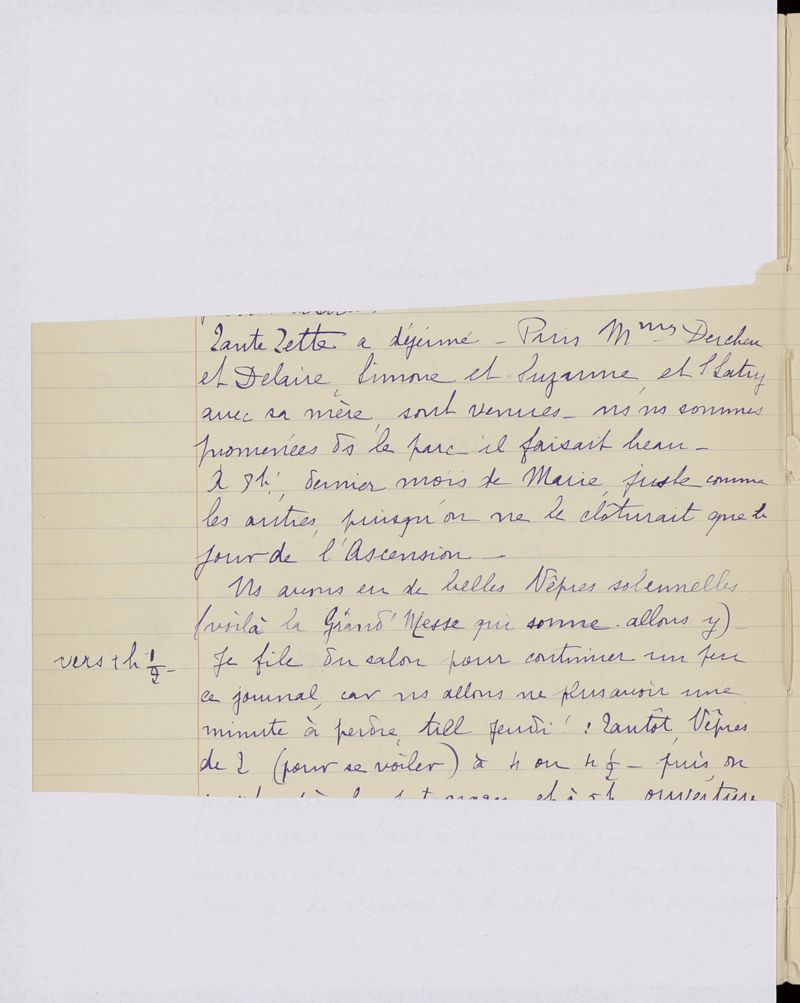 Tante Zette a déjeuné – Puis Mmes Dercheu
et Delaire, Simone et Suzanne, et
avec sa mère, sont venues – ns ns sommes
promenées ds le parc – il faisait beau –
À 8h, dernier mois de Marie, juste comme
les autres, puisqu'on ne le clôturait que le
jour de l'Ascension –
Ns avons eu de belles Vêpres solennelles
(voilà la Grand'Messe qui sonne. allons y) –
vers 1h ½ –
Je file du salon pour continuer un peu
ce journal, car ns allons ne plus avoir une
minute à perdre, till jeudi! : Tantôt, Vêpres
de 2 (pour se voiler) à 4 ou 4 ½ – puis, on
et à 5h ouverture